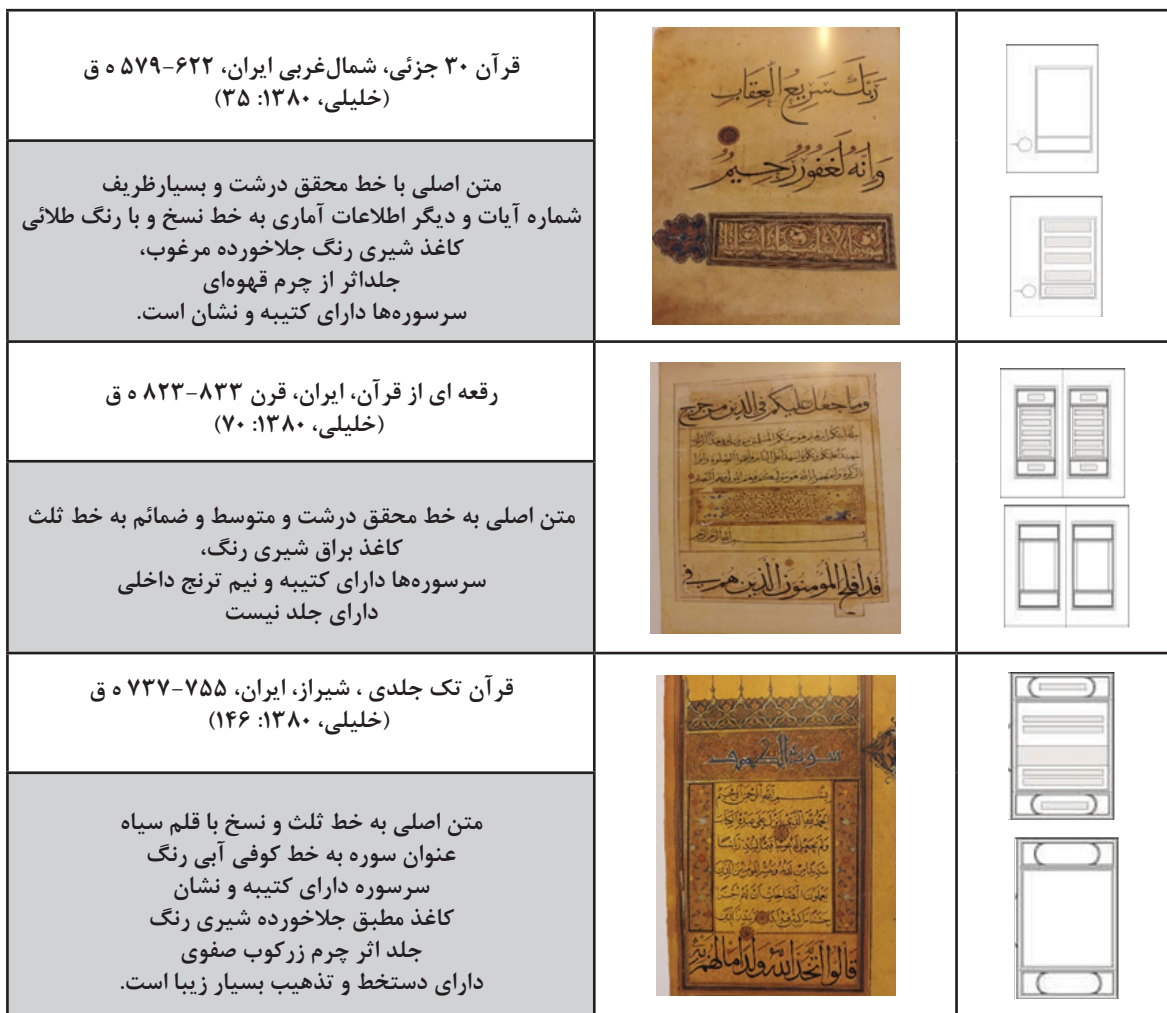 قرآن ۳۰ جزئی، شمال‌غربی ایران، ۶۲۲-۵۷۹ ه ق
(خلیلی، ۱۳۸۰: ۳۵)
متن اصلی با خط محقق درشت و بسیارظریف
شماره آیات و دیگر اطلاعات آماری به خط نسخ و با رنگ طلائی
کاغذ شیری رنگ جلاخورده مرغوب،
جلداثر از چرم قهوه‌ای
سرسوره‌ها دارای کتیبه و نشان است.
رَبَّكَ سَرِيعُ الْعِقَابِ
وَإِنَّهُ لَغَفُورٌ رَحِيمٌ
رقعه ای از قرآن، ایران، قرن ۸۳۳-۸۲۳ ه ق
(خلیلی، ۱۳۸۰: ۷۰)
متن اصلی به خط محقق درشت و متوسط و ضمائم به خط ثلث
کاغذ براق شیری رنگ،
سرسوره‌ها دارای کتیبه و نیم ترنج داخلی
دارای جلد نیست
وما جعل عليكم في الدين من حرج
قد أفلح المؤمنون الذين هم في
قرآن تک جلدی ، شیراز، ایران، ۷۵۵-۷۳۷ ه ق
(خلیلی، ۱۳۸۰: ۱۴۶)
متن اصلی به خط ثلث و نسخ با قلم سیاه
عنوان سوره به خط کوفی آبی رنگ
سرسوره دارای کتیبه و نشان
کاغذ مطبق جلاخورده شیری رنگ
جلد اثر چرم زرکوب صفوی
دارای دستخط و تذهیب بسیار زیبا است.
سورة الكهف
بسم الله الرحمن الرحيم
قالوا اتخذ الله ولدا مالهم به